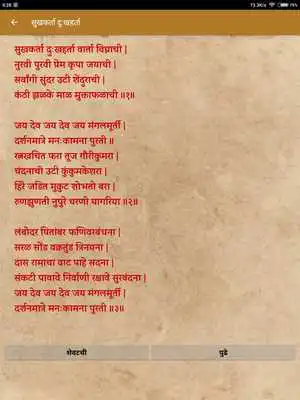 सुखकर्ता दुःखहर्ता
सुखकर्ता दुःखहर्ता वार्ता विघ्नाची |
नुरवी पुरवी प्रेम कृपा जयाची |
सर्वांगी सुंदर उटी शेंदुराची |
कंठी झळके माळ मुक्ताफळाची ॥१॥
जय देव जय देव जय मंगलमूर्ती |
दर्शनमात्रे मनःकामना पुरती ॥
रत्नखचित फरा तूज गौरीकुमरा |
चंदनाची उटी कुंकुमकेशरा |
हिरे जडित मुकुट शोभतो बरा |
रुणझुणती नुपुरे चरणी घागरिया ॥२॥
लंबोदर पितांबर फणिवरबंधना |
सरळ सोंड वक्रतुंड त्रिनयना |
दास रामाचा वाट पाहे सदना |
संकटी पावावे निर्वाणी रक्षावे सुरवंदना |
जय देव जय देव जय मंगलमूर्ती |
दर्शनमात्रे मनःकामना पुरती ॥३॥
शेवटची
पुढे